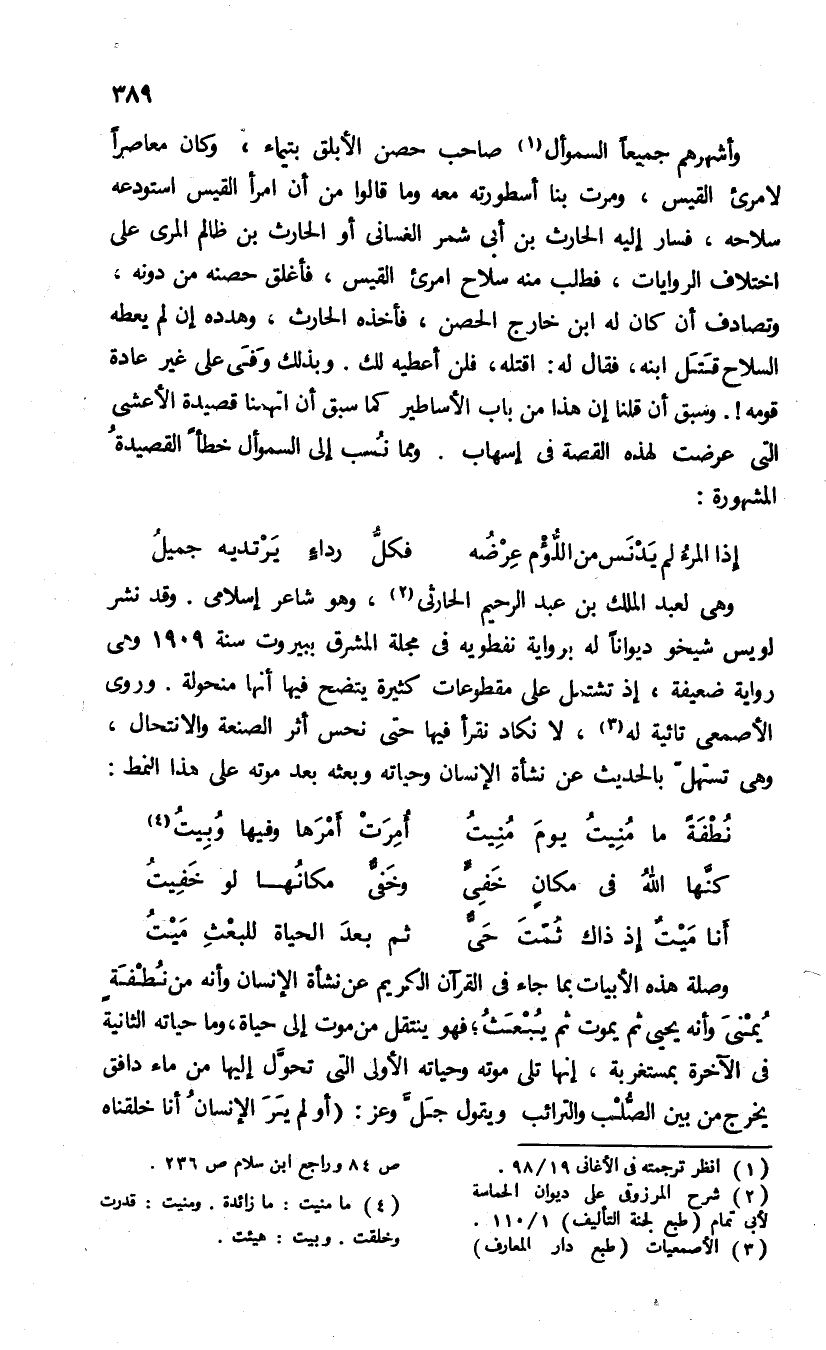 ٣٨٩
وأشهرهم جميعاً السموأل(١) صاحب حصن الأبلق بتيماء ، وكان معاصراً
لامرئ القيس ، ومرت بنا أسطورته معه وما قالوا من أن امرأ القيس استودعه
سلاحه ، فسار إليه الحارث بن أبي شمر الغسانى أو الحارث بن ظالم المرى على
اختلاف الروايات ، فطلب منه سلاح امرئ القيس ، فأغلق حصنه من دونه ،
وتصادف أن كان له ابن خارج الحصن ، فأخذه الحارث ، وهدده إن لم يعطه
السلاح قَتَل ابنه، فقال له: اقتله، فلن أعطيه لك . وبذلك وَفَى على غير عادة
قومه !. وسبق أن قلنا إن هذا من باب الأساطير كما سبق أن اتهمنا قصيدة الأعشى
التى عرضت لهذه القصة فى إسهاب . ومما نُسب إلى السموأل خطأً القصيدةُ
المشهورة :
إذا المرءُ لم يَدْنَس من اللُّؤْم عِرْضُه فكلُّ رداءٍ يَرْتديه جميلُ
وهى لعبد الملك بن عبد الرحيم الحارثى(٢) ، وهو شاعر إسلامى . وقد نشر
لويس شيخو ديواناً له برواية نفطويه فى مجلة المشرق ببيروت سنة ١٩٠٩ وهى
رواية ضعيفة ، إذ تشتمل على مقطوعات كثيرة يتضح فيها أنها منحولة . وروى
الأصمعى تائية له(٣) ، لا نكاد نقرأ فيها حتى نحس أثر الصنعة والانتحال ،
وهى تستهلّ بالحديث عن نشأة الإنسان وحياته وبعثه بعد موته على هذا النمط :
نُطْفَةً ما مُنِيتُ يومَ مُنِيتُ أُمِرَتْ أَمْرَها وفيها وُبِيتُ(٤)
كنَّها اللهُ فى مكانٍ خَفِىٍّ وخَفىٌّ مكانُهـا لو خَفِيتُ
أَنا مَيْتٌ إذ ذاك ثُمَّتَ حَىٌّ ثم بعدَ الحياة للبعْثِ مَيْتُ
وصلة هذه الأبيات بما جاء فى القرآن الكريم عن نشأة الإنسان وأنه من نُطْفَةٍ
يُمْنَى وأنه يحيى ثم يموت ثم يُبْعَثُ؛ فهو ينتقل من موت إلى حياة، وما حياته الثانية
فى الآخرة بمستغربة ، إنها تلى موته وحياته الأولى التى تحوَّل إليها من ماء دافق
يخرج من بين الصُّلْب والترائب ويقول جَلَّ وعز : (أو لم يَرَ الإنسانُ أنا خلقناه
(١) انظر ترجمته فى الأغانى ٩٨/١٩ .
(٢) شرح المرزوقى على ديوان الحماسة
لأبى تمام (طبع لجنة التأليف) ١١٠/١ .
(٣) الأصمعيات (طبع دار المعارف)
ص ٨٤ وراجع ابن سلام ص ٢٣٦ .
(٤) ما منيت : ما زائدة . ومنيت : قدرت
وخلقت . وبيت : هيئت .